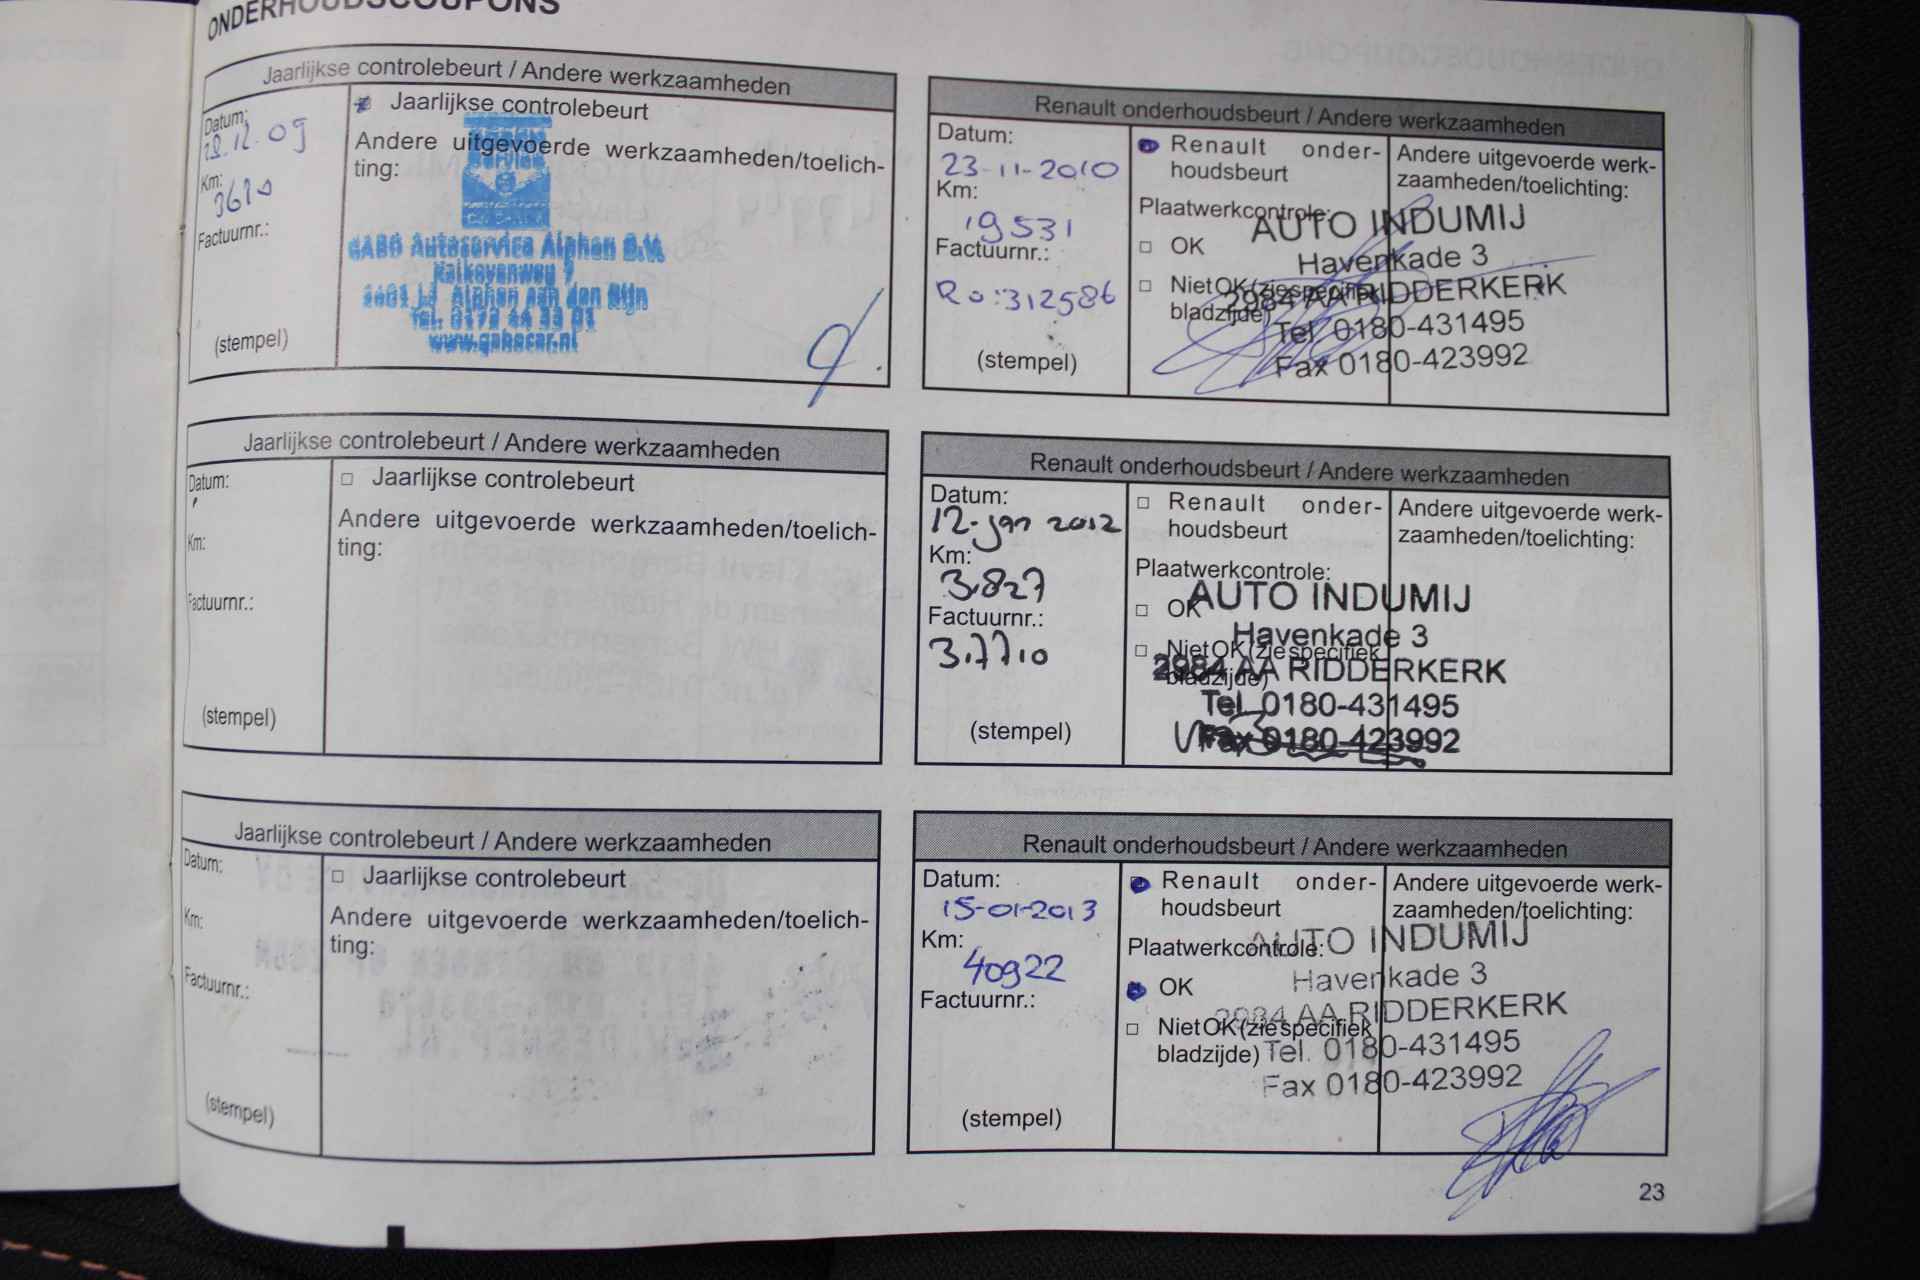 ONDERHOUDSCOUPONS
Jaarlijkse controlebeurt / Andere werkzaamheden
Datum:
Jaarlijkse controlebeurt
12.09
Andere uitgevoerde werkzaamheden/toelich-
ting:
Km:
Factuurnr.:
GABO Autoservice Alphen B.V.
Kalkovenweg
Alphen aan den Rijn
www.gabocar.nl
(stempel)
Renault onderhoudsbeurt / Andere werkzaamheden
Datum:
23-11-2010
Km:
19531
Factuurnr.:
Ro:312586
(stempel)
Renault onder-
houdsbeurt
Plaatwerkcontrole:
OK
Niet OK (zie specifiek
bladzijde)
Andere uitgevoerde werk-
zaamheden/toelichting:
AUTO INDUMIJ
Havenkade 3
2984 AA RIDDERKERK
Tel 0180-431495
Fax 0180-423992
Jaarlijkse controlebeurt / Andere werkzaamheden
Datum:
Jaarlijkse controlebeurt
Andere uitgevoerde werkzaamheden/toelich-
ting:
Km:
Factuurnr.:
(stempel)
Renault onderhoudsbeurt / Andere werkzaamheden
Datum:
12-jan 2012
Km:
3.827
Factuurnr.:
3.7710
(stempel)
Renault onder-
houdsbeurt
Plaatwerkcontrole:
OK
Niet OK (zie specifiek
bladzijde)
Andere uitgevoerde werk-
zaamheden/toelichting:
AUTO INDUMIJ
Havenkade 3
2984 AA RIDDERKERK
Tel. 0180-431495
Fax 0180-423992
Jaarlijkse controlebeurt / Andere werkzaamheden
Datum:
Jaarlijkse controlebeurt
Andere uitgevoerde werkzaamheden/toelich-
ting:
Km:
Factuurnr.:
(stempel)
Renault onderhoudsbeurt / Andere werkzaamheden
Datum:
15-01-2013
Km:
40922
Factuurnr.:
(stempel)
Renault onder-
houdsbeurt
Plaatwerkcontrole:
OK
Niet OK (zie specifiek
bladzijde)
Andere uitgevoerde werk-
zaamheden/toelichting:
AUTO INDUMIJ
Havenkade 3
2984 AA RIDDERKERK
Tel. 0180-431495
Fax 0180-423992
23